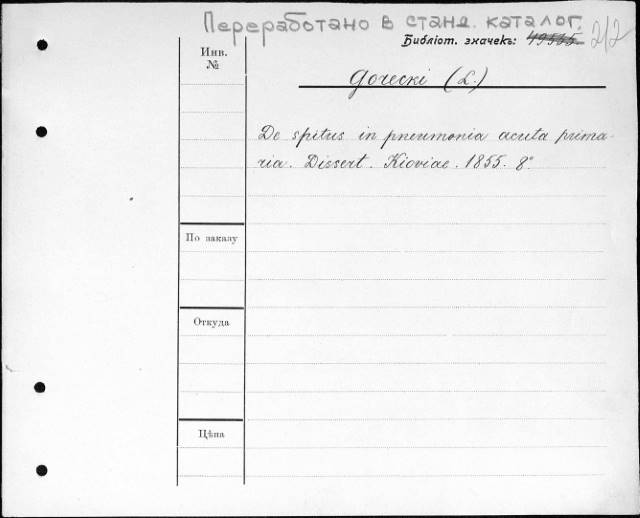 Переработано в станд. каталог.
Библіот. значекъ: 49535. 2/2
Инв.
№
Gorecki (L.)
De sputus in pneumonia acuta prima-
ria. Dissert. Kioviae. 1855. 8°
По заказу
Откуда
Цѣна